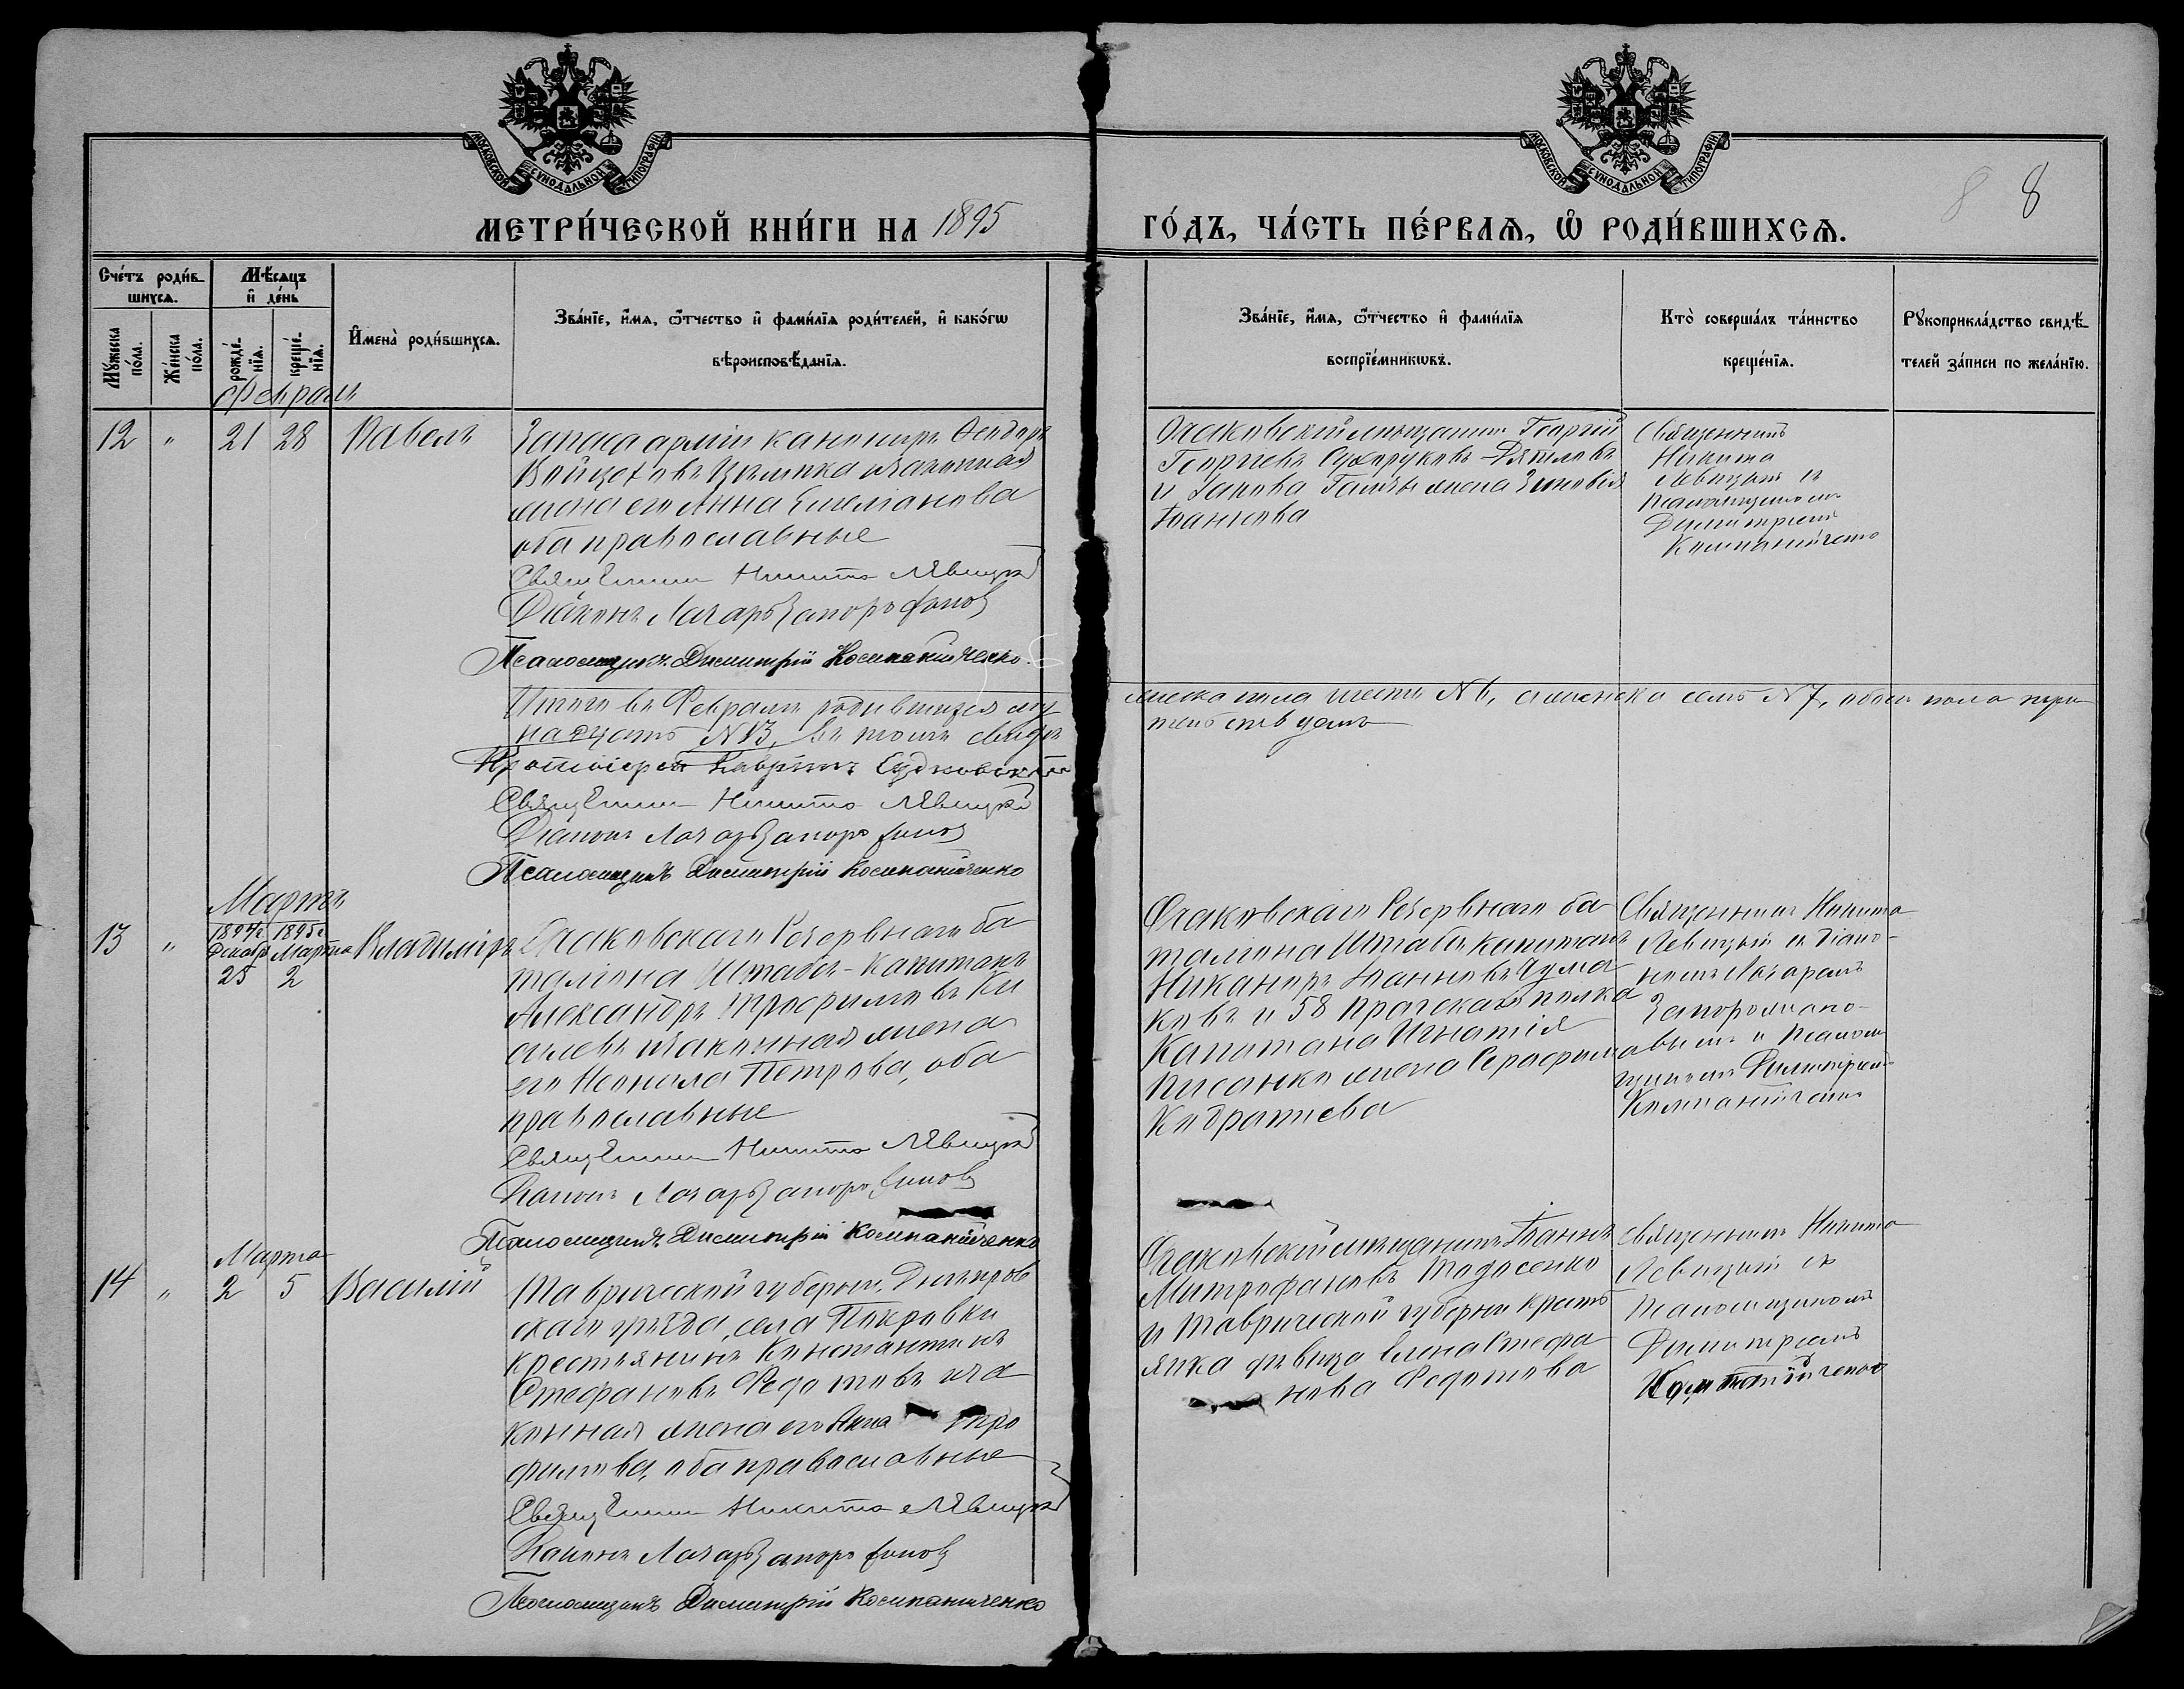 МОСКОВСКОЙ СѴНОДАЛЬНОЙ ТИПОГРАФІИ
МОСКОВСКОЙ СѴНОДАЛЬНОЙ ТИПОГРАФІИ
8 8
МЕТРИ́ЧЕСКОЙ КНИ́ГИ НА 1895
ГО́ДЪ, ЧА́СТЬ ПЕ́РВАѦ, Ѡ҆ РОДИ́ВШИХСѦ.
Сче́тъ роди́в-
шихсѧ.
Мѣ́сѧцъ
и҆ де́нь
Мꙋ́жеска
по́ла.
Же́нска
по́ла.
рожде́-
нїѧ.
креще́-
нїѧ.
И҆мена̀ роди́вшихсѧ.
Зва́нїе, и҆́мѧ, ѻ҆́тчество и҆ фами́лїѧ роди́телей, и҆ како́гѡ
вѣроисповѣ́данїѧ.
Зва́нїе, и҆́мѧ, ѻ҆́тчество и҆ фами́лїѧ
воспрїе́мникѡвъ.
Кто̀ соверша́лъ та́инство
креще́нїѧ.
Рꙋкоприкла́дство свидѣ́-
телей за́писи по жела́нїю.
Февраля
12 " 21 28 Павелъ
Запаса арміи канониръ Ѳеодоръ
Войцеховъ и законная
жена его Анна
оба православные
Священникъ Никита Лѣвицкій
Діаконъ Лазарь Запорожановъ
Псаломщикъ Димитрій Компанійченко
Очаковскій мѣщанинъ Георгій
Георгіевъ Сухоруковъ-Дятловъ
и Іакова жена Зиновія
Іоаннова
Священникъ
Никита
Левицкій съ
псаломщикомъ
Димитріемъ
Компанійченко
Итого въ Февралѣ родившихся му
жеска пола шесть №6, а женска семь №7, обоего пола три
надцать №13, въ томъ свидѣ
тельствуемъ
Протоіерей Гавріилъ Судковскій
Священникъ Никита Лѣвицкій
Діаконъ Лазарь Запорожановъ
Псаломщикъ Димитрій Компанійченко
Мартъ
13 " 1894г. Декабр. 25 1895г. Марта 2 Владиміръ
Очаковскаго Резервнаго ба
таліона Штабсъ-Капитанъ
Александръ Трофимовъ Ки
селевъ и законная жена
его Неонила Петрова, оба
православные
Священникъ Никита Лѣвицкій
Діаконъ Лазарь Запорожановъ
Псаломщикъ Димитрій Компанійченко
Очаковскаго Резервнаго ба
таліона Штабсъ капитанъ
Никаноръ Іоанновъ Чума
ковъ и 58 Прагскаго полка
Капитана Игнатія
Писанко жена Серафима
Кодратиева
Священникъ Никита
Левицкій съ діако-
номъ Лазаремъ
Запорожано-
вымъ и псалом
щикомъ Димитріемъ
Компанійченко
Марта
14 " 2 5 Василій
Таврической губерніи, Днѣпров
скаго уѣзда, села Покровки
крестьянинъ Константинъ
Стефановъ Федотовъ и за
конная жена его Анна Тро
фимова, оба православные
Священникъ Никита Лѣвицкій
Діаконъ Лазарь Запорожановъ
Псаломщикъ Димитрій Компанійченко
Очаковскій мѣщанинъ Іоаннъ
Митрофановъ Тодосенко
и Таврической губерніи кресть
янка дѣвица Елена Стефа
нова Федотова
Священникъ Никита
Левицкій съ
псаломщикомъ
Димитріемъ
Компанійченко